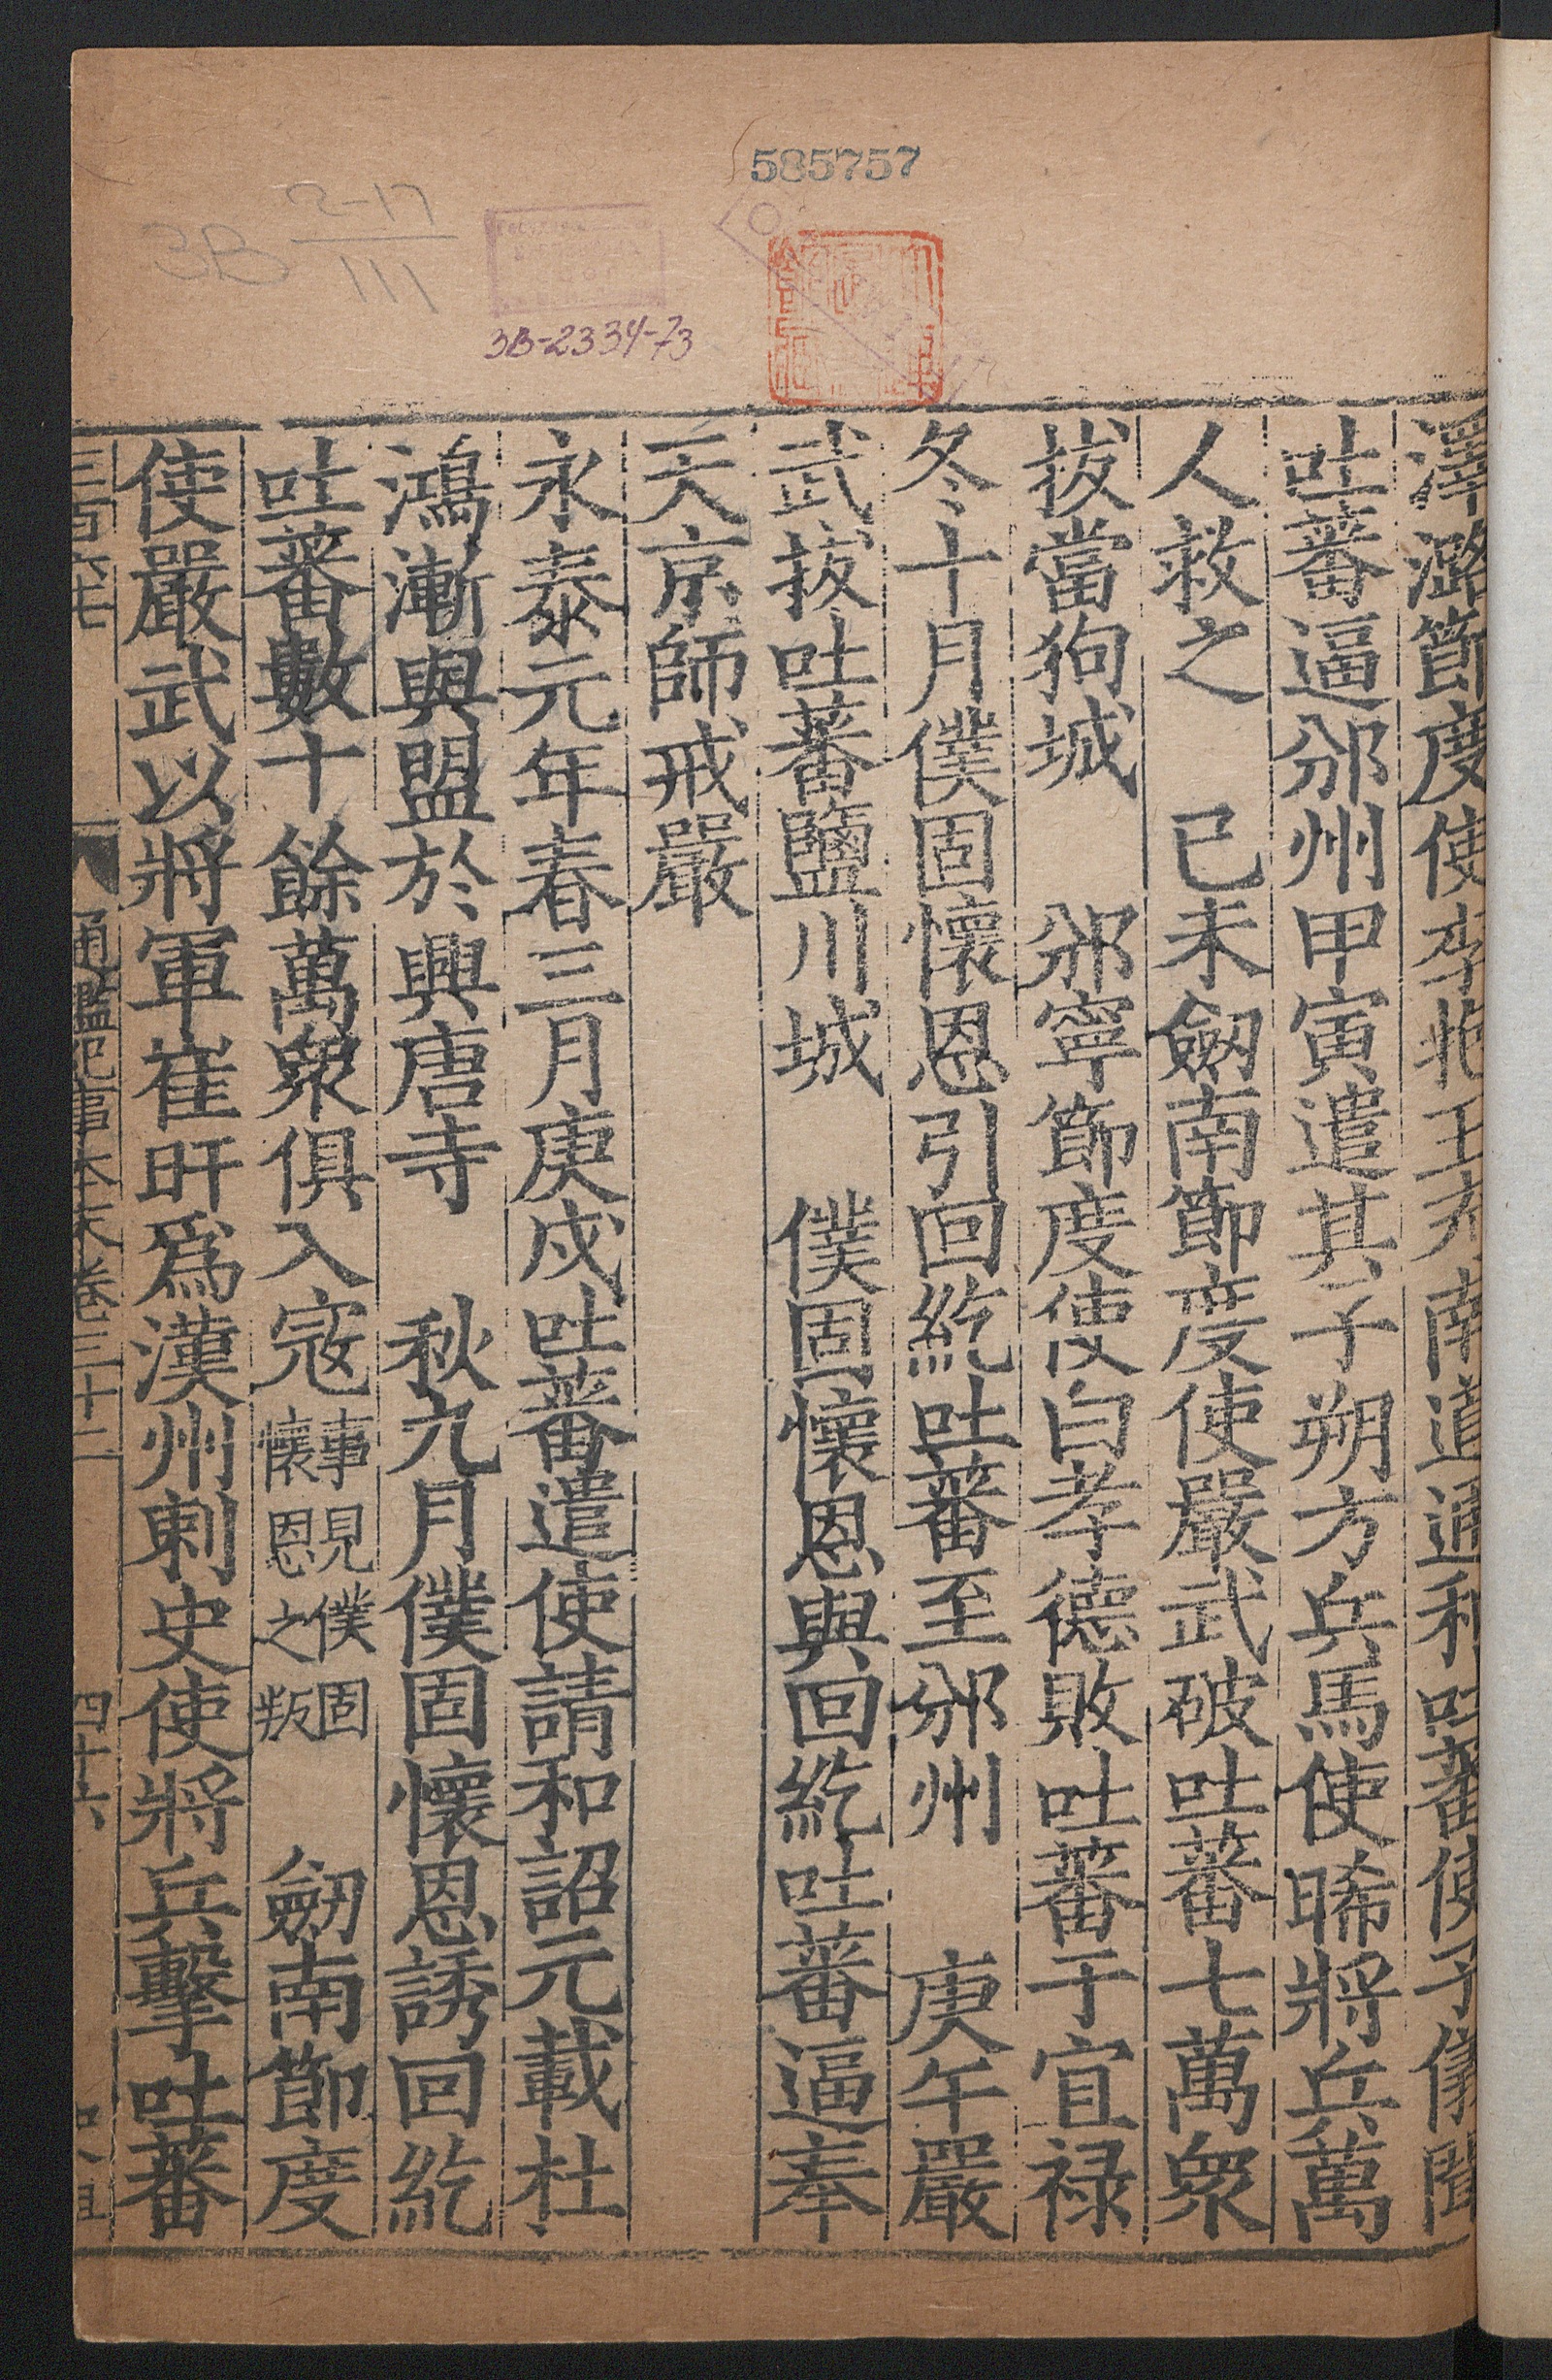 585757
2-17
3B
111
3B-2334-73
澤潞節度使李抱玉充南道通和吐蕃使子儀聞
吐蕃逼邠州甲寅遣其子朔方兵馬使晞將兵萬
人救之 已未劒南節度使嚴武破吐蕃七萬衆
拔當狗城 邠寧節度使白孝德敗吐蕃于宜禄
冬十月僕固懷恩引回紇吐蕃至邠州 庚午嚴
武拔吐蕃鹽川城 僕固懷恩與回紇吐蕃逼奉
天京師戒嚴
永泰元年春三月庚戌吐蕃遣使請和詔元載杜
鴻漸與盟於興唐寺 秋九月僕固懷恩誘回紇
吐蕃數十餘萬衆俱入寇事見僕固懷恩之叛 劒南節度
使嚴武以將軍崔旰爲漢州刺史使將兵擊吐蕃
三百六七 通鑑紀事本末卷三十二 四十六